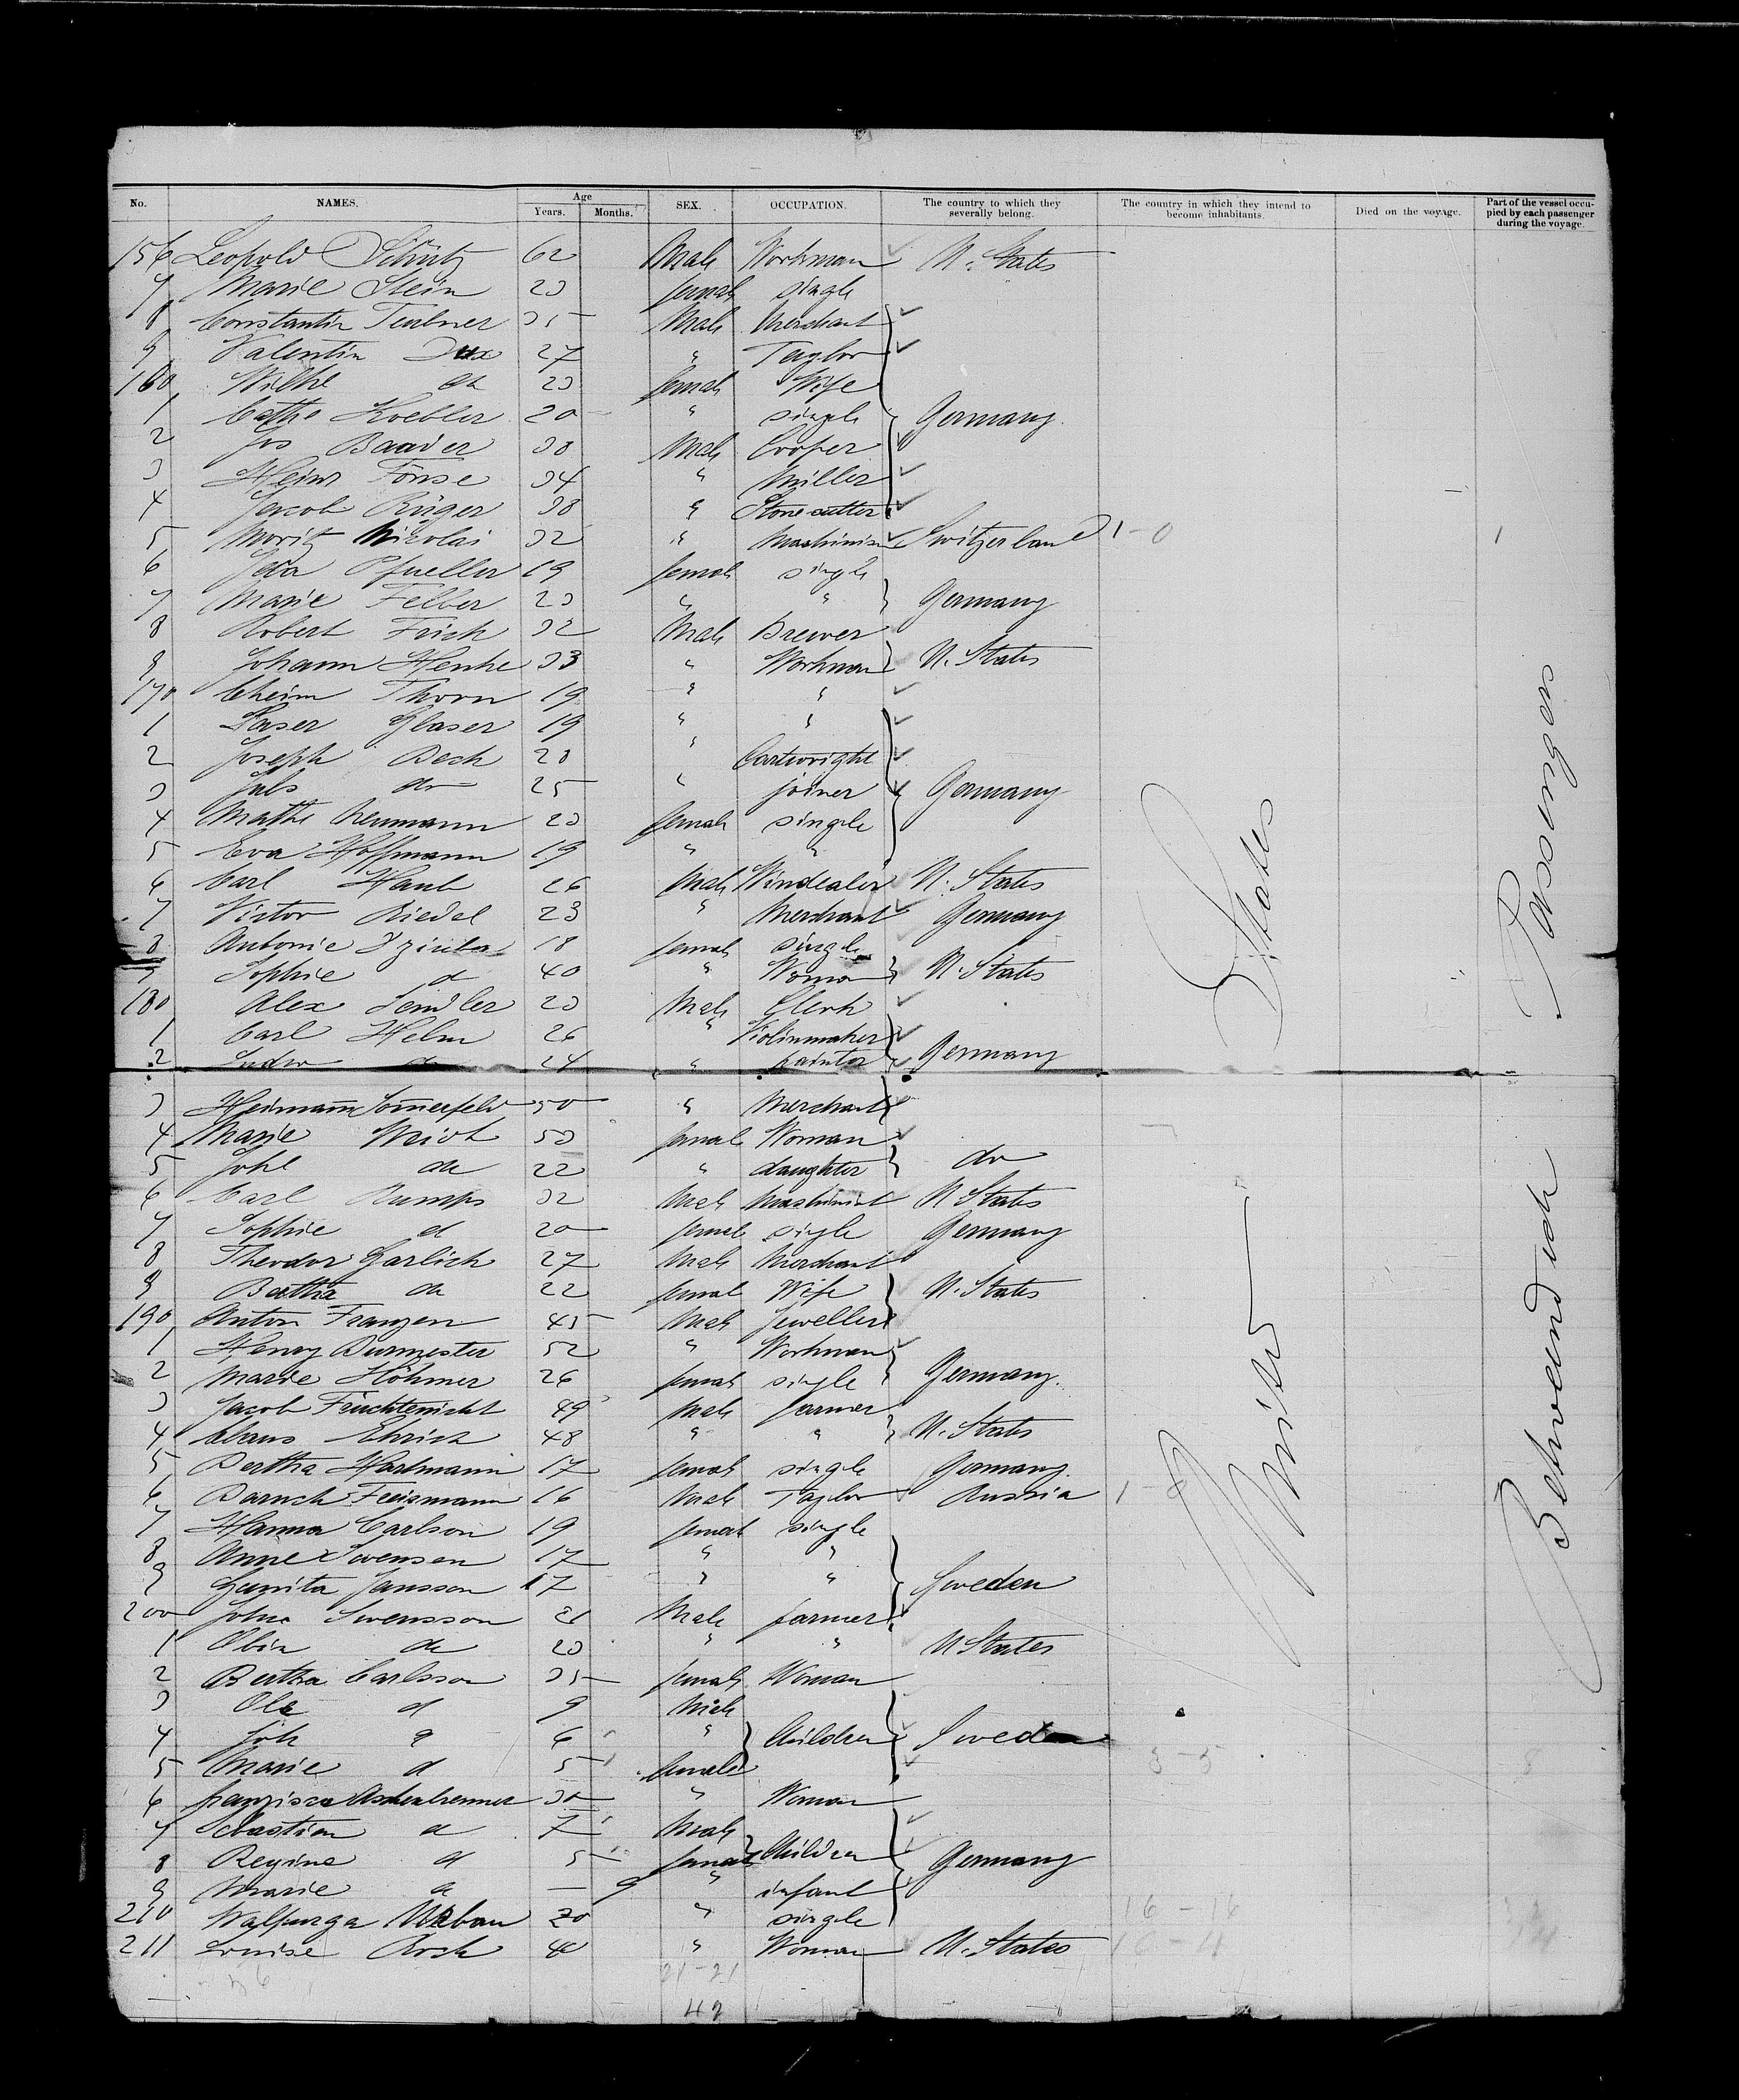 No. NAMES. Age Years. Months. SEX. OCCUPATION. The country to which they severally belong. The country in which they intend to become inhabitants. Died on the voyage. Part of the vessel occupied by each passenger during the voyage.
156 Leopold Schütz 62 Male Workman U. States
7 Marie Stein 23 female single
8 Constantin Teubner 35 Male Merchant
9 Valentin Dux 27 " Taylor
160 Wilhe do 23 female Wife
1 Cathe Koebler 20 " single Germany
2 Jos Baader 38 Male Cooper
3 Heinr Fönse 34 " Miller
4 Jacob Rüger 38 " Stonecutter
5 Moritz Nicolai 32 " Mashinist Switzerland 1-0 1
6 Ida Pfueller 19 female single
7 Marie Felber 23 " " Germany
8 Robert Frick 32 Male Brewer
9 Johann Henke 33 " Workman U. States
170 Cheim Thorn 19 " "
1 Laser Glaser 19 " "
2 Joseph Beck 28 " Cartwright
3 Jul's do 25 " joiner Germany
4 Mathe Neumann 23 female single
5 Eva Hoffmann 19 " "
6 Carl Hank 26 Male Windealer U. States
7 Victor Riedel 23 " Merchant Germany
8 Antonie 18 female single
9 Sophie d 40 " Woman U. States
180 Alex Sendler 23 Male Clerk
1 Carl Helm 26 " Violinmaker
2 Ludw do 24 " painter Germany
3 Heimann Sommerfeld 50 " Merchant
4 Marie 53 female Woman
5 Johe do 22 " daughter do
6 Carl Rumps 32 Male Mashinist U States
7 Sophie d 20 female single Germany
8 Theodor Garlich 27 Male Merchant
9 Bertha do 22 female Wife U. States
190 Anton Franzen 45 Male Jeweller
1 Henry Burmester 52 " Workman
2 Marie Höhmer 26 female single Germany
3 Jacob Früchtenicht 49 Male farmer
4 Claus Ehrich 48 " " U. States
5 Bertha Hartmann 17 female single Germany
6 Baruch Freismann 16 Male Taylor Russia 1-0
7 Hanna Carlson 19 female single
8 Anne Swensen 17 " "
9 Gunita Jansson 17 " " Sweden
200 John Swensson 21 Male farmer
1 Olin do 23 " " U States
2 Bertha Carlsson 35 female Woman
3 Ole d 9 Male
4 Joh d 6 " Children Sweden
5 Marie d 5 female 3-5 8
6 Franzisca Aschenbrenner 30 " Woman
7 Sebastian d 7 Male
8 Regina d 5 female Children Germany
9 Marie d — 9 " infant
210 Walpurga Urban 20 " single 16-16
211 Louise Arch 40 " Woman U. States 16-4
21-21
42
United States
Between deck Passengers